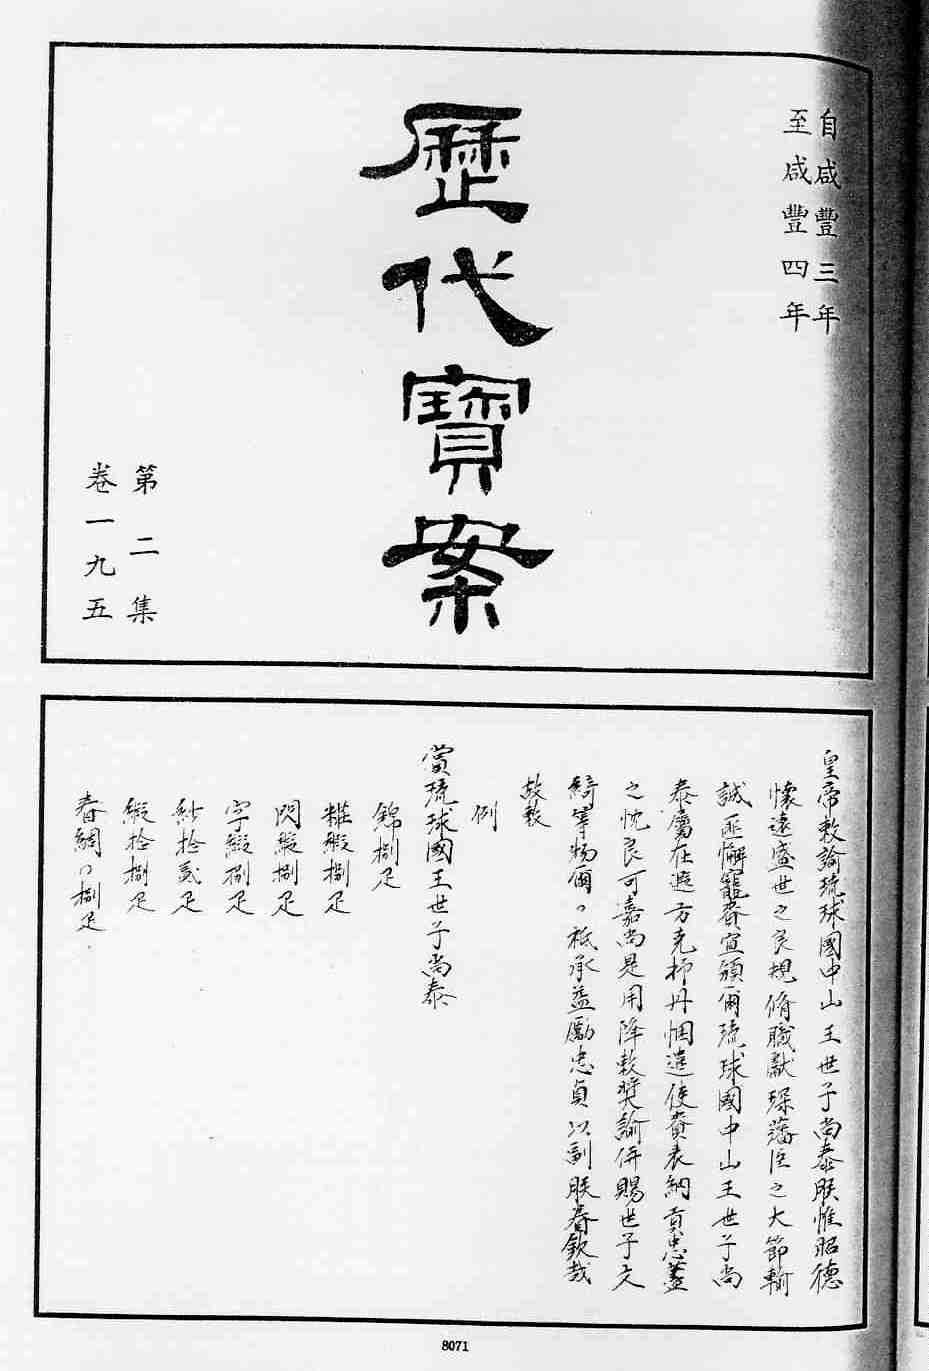 自咸豐三年
至咸豐四年
歷代寶案
第二集
卷一九五
皇帝敕諭琉球國中山王世子尚泰朕惟昭德
懷遠盛世之良規修職獻琛藩臣之大節輸
誠匪懈寵賚宣頒爾琉球國中山王世子尚
泰屬在遐方克抒丹悃遣使賫表納貢忠藎
之忱良可嘉尚是用降敕奬諭併賜世子文
綺等物爾〻祗承益勵忠貞以副朕眷欽哉
故敕
例
賞琉球國王世子尚泰
錦捌疋
粧緞捌疋
閃緞捌疋
字緞捌疋
紗拾貳疋
緞拾捌疋
春綢〻捌疋
8071